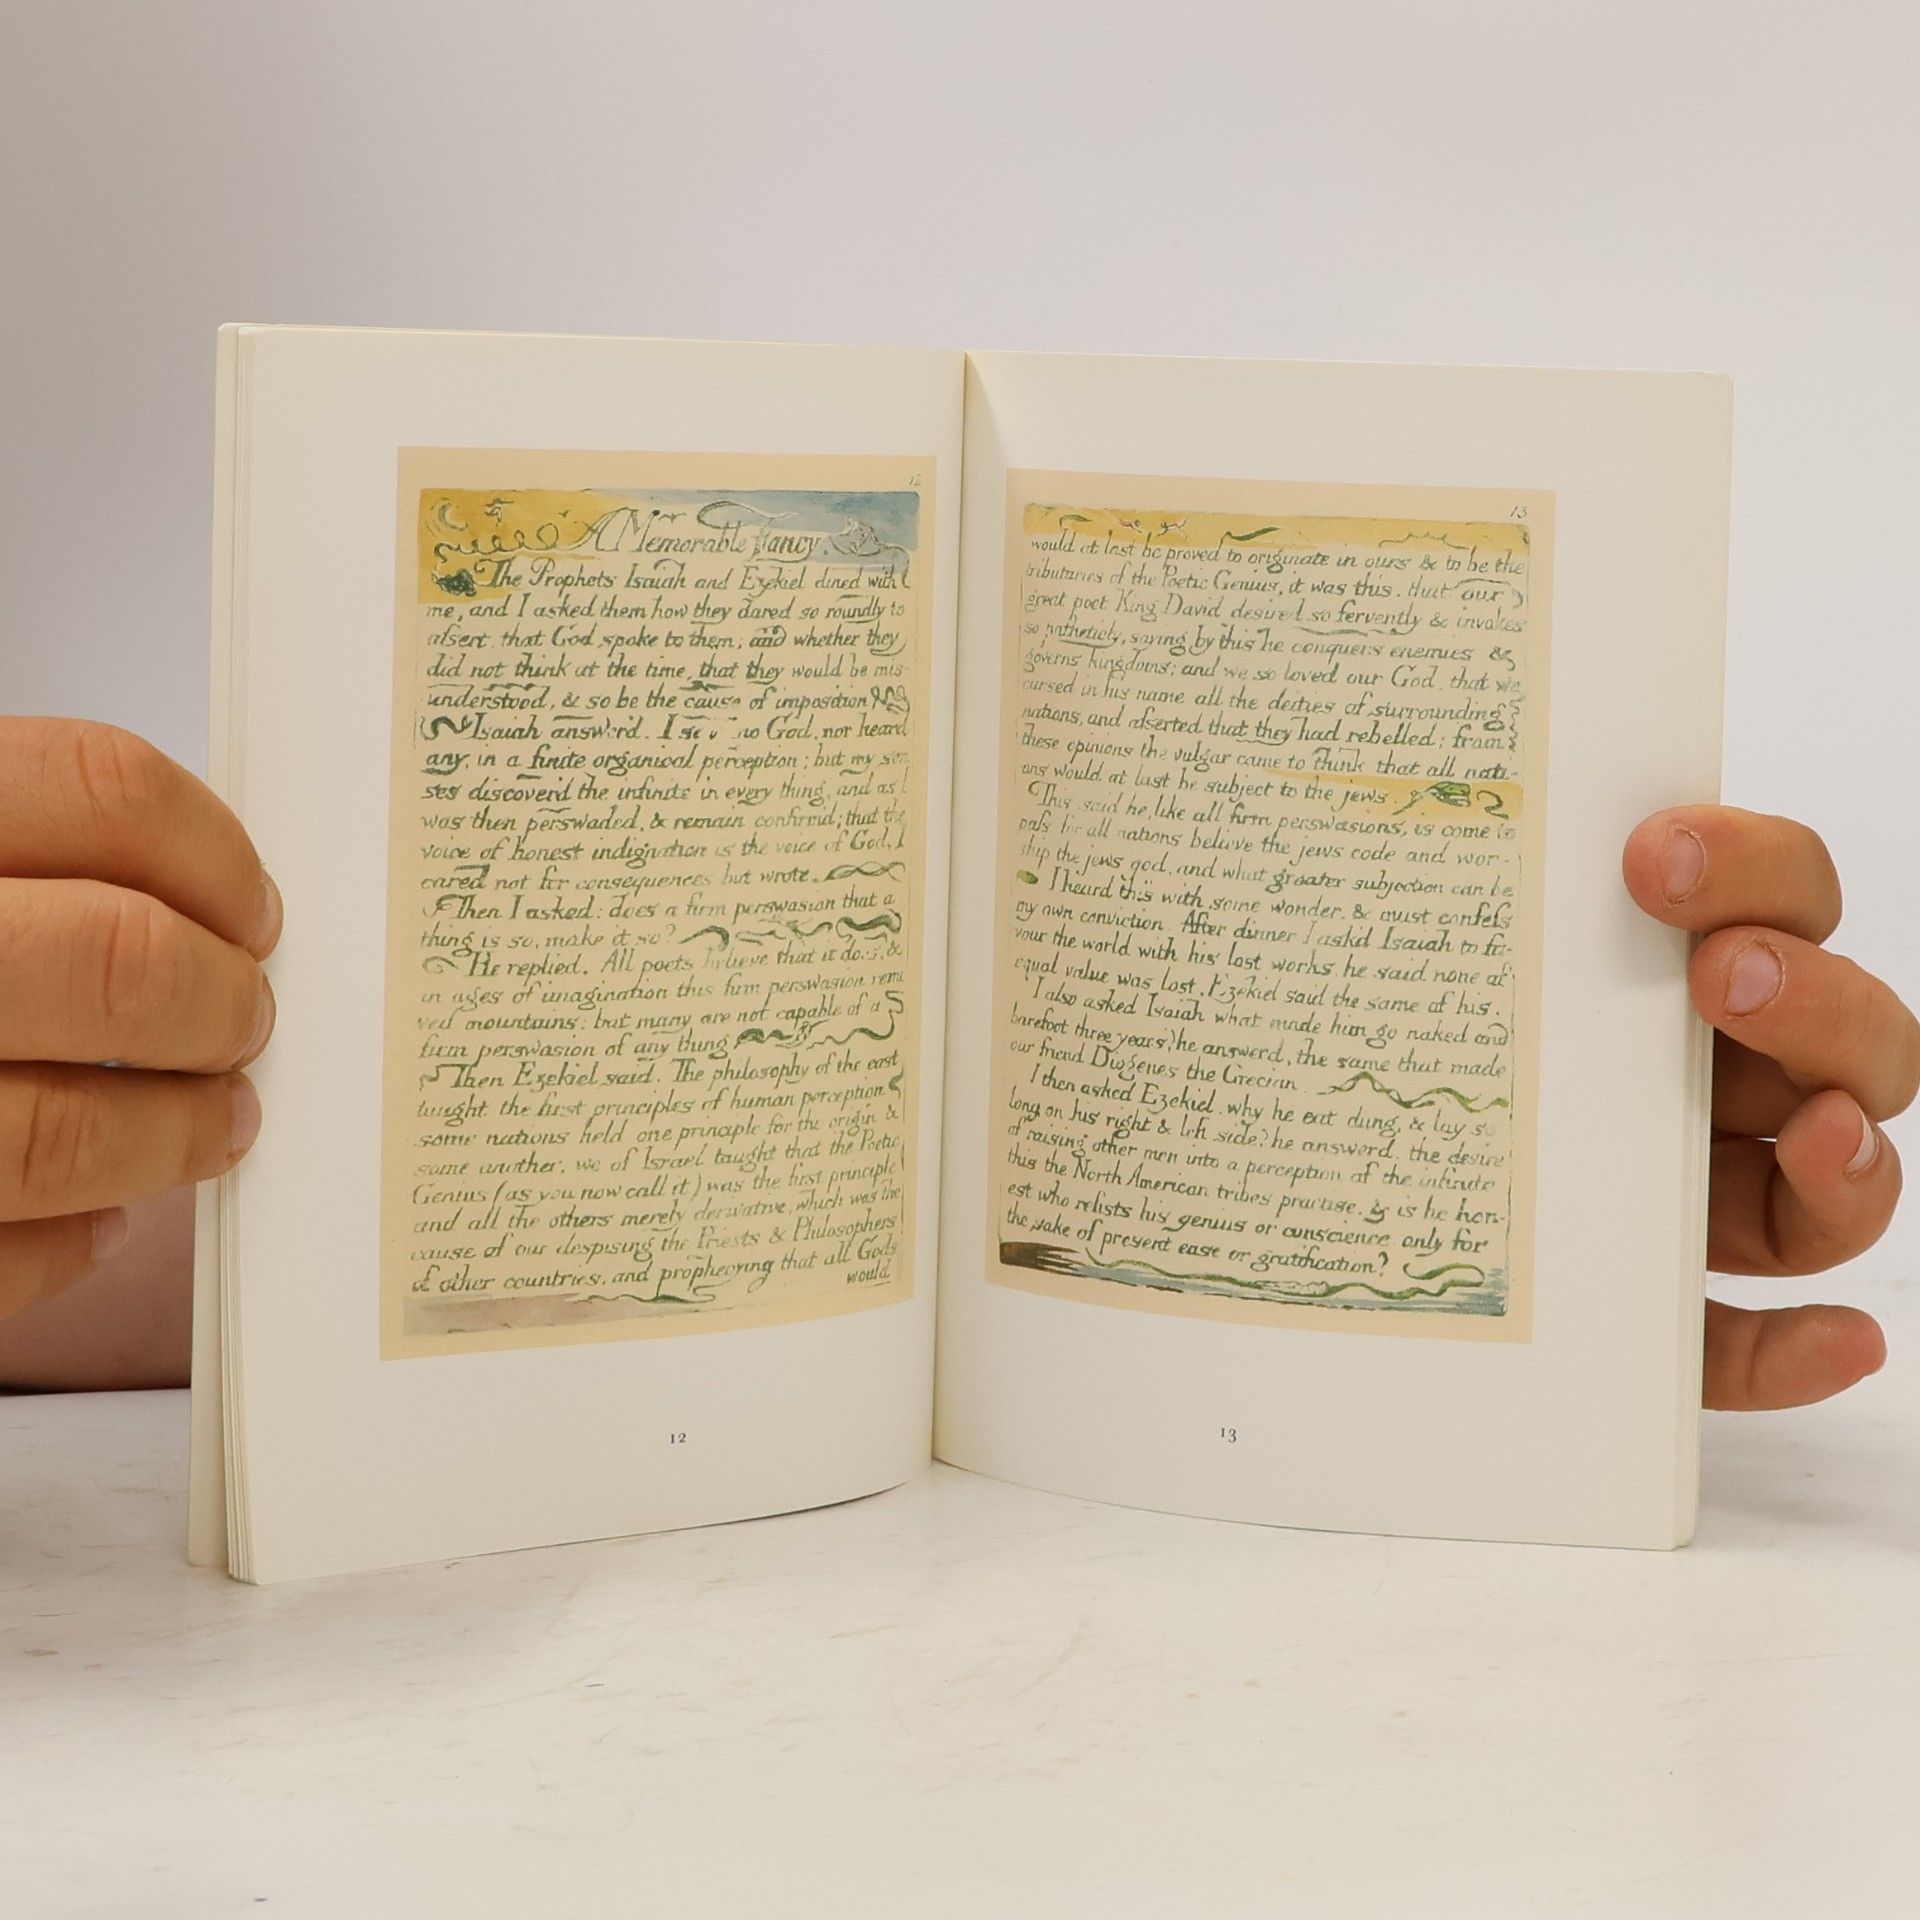 12
A Memorable Fancy.
The Prophets Isaiah and Ezekiel dined with
me, and I asked them how they dared so roundly to
afsert, that God spoke to them; and whether they
did not think at the time, that they would be mis-
understood, & so be the cause of imposition
Isaiah answer'd. I saw no God, nor heard
any, in a finite organical perception; but my sen
ses discover'd the infinite in every thing, and as I
was then perswaded, & remain confirm'd; that the
voice of honest indignation is the voice of God, I
cared not for consequences but wrote.
Then I asked: does a firm perswasion that a
thing is so, make it so?
He replied. All poets believe that it does, &
in ages of imagination this firm perswasion remo
ved mountains; but many are not capable of a
firm perswasion of any thing
Then Ezekiel said. The philosophy of the east
taught the first principles of human perception
some nations held one principle for the origin &
some another, we of Israel taught that the Poetic
Genius (as you now call it) was the first principle
and all the others merely derivative, which was the
cause of our despising the Priests & Philosophers
of other countries, and prophecying that all Gods
would
12
13
would at last be proved to originate in ours & to be the
tributaries of the Poetic Genius, it was this. that our
great poet King David desired so fervently & invokes
so patheticly, saying by this he conquers enemies &
governs kingdoms; and we so loved our God. that we
cursed in his name all the deities of surrounding
nations, and afserted that they had rebelled; from
these opinions the vulgar came to think that all nati-
ons would at last be subject to the jews.
This said he, like all firm perswasions, is come to
pafs for all nations believe the jews code and wor-
ship the jews god, and what greater subjection can be
I heard this with some wonder, & must confefs
my own conviction. After dinner I ask'd Isaiah to fa-
vour the world with his lost works, he said none of
equal value was lost. Ezekiel said the same of his.
I also asked Isaiah what made him go naked and
barefoot three years? he answerd, the same that made
our friend Diogenes the Grecian.
I then asked Ezekiel. why he eat dung, & lay so
long on his right & left side? he answerd. the desire
of raising other men into a perception of the infinite
this the North American tribes practise. & is he hon-
est who resists his genius or conscience. only for
the sake of present ease or gratification?
13